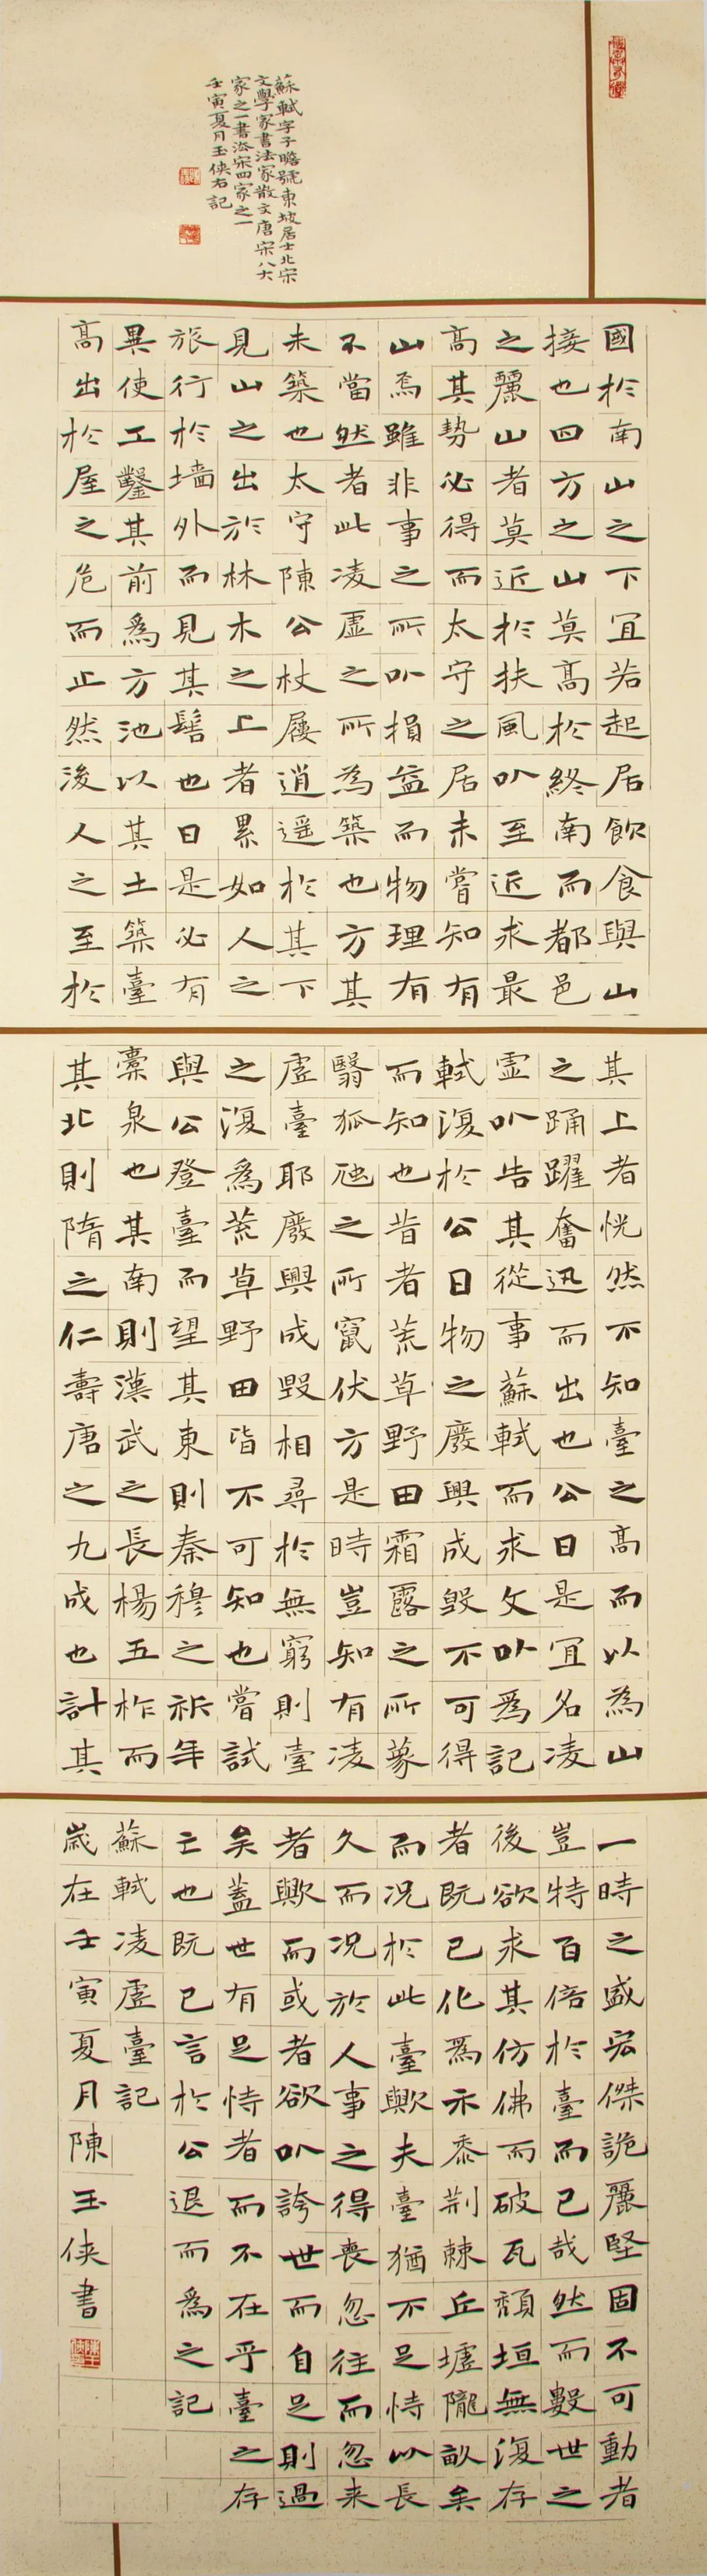 蘇軾字子瞻號東坡居士北宋
文學家書法家散文唐宋八大
家之一書法宋四家之一
壬寅夏月玉俠右記
國於南山之下宜若起居飲食與山
接也四方之山莫高於終南而都邑
之麗山者莫近於扶風以至近求最
高其勢必得而太守之居未嘗知有
山焉雖非事之所以損益而物理有
不當然者此凌虛之所為築也方其
未築也太守陳公杖屨逍遥於其下
見山之出於林木之上者累如人之
旅行於墻外而見其髻也曰是必有
異使工鑿其前為方池以其土築臺
高出於屋之危而止然後人之至於
其上者恍然不知臺之高而以為山
之踊躍奮迅而出也公曰是宜名凌
霊以告其從事蘇軾而求文以為記
軾復於公曰物之廢興成毀不可得
而知也昔者荒草野田霜露之所蒙
翳狐虺之所竄伏方是時豈知有凌
虛臺耶廢興成毀相尋於無窮則臺
之復為荒草野田皆不可知也嘗試
與公登臺而望其東則秦穆之祈年
橐泉也其南則漢武之長楊五柞而
其北則隋之仁壽唐之九成也計其
一時之盛宏傑詭麗堅固不可動者
豈特百倍於臺而已哉然而數世之
後欲求其仿佛而破瓦頹垣無復存
者既已化為禾黍荊棘丘墟隴畝矣
而況於此臺歟夫臺猶不足恃以長
久而況於人事之得喪忽往而忽来
者歟而或者欲以誇世而自足則過
矣蓋世有足恃者而不在乎臺之存
亡也既已言於公退而為之記
蘇軾凌虛臺記
歲在壬寅夏月陳玉俠書